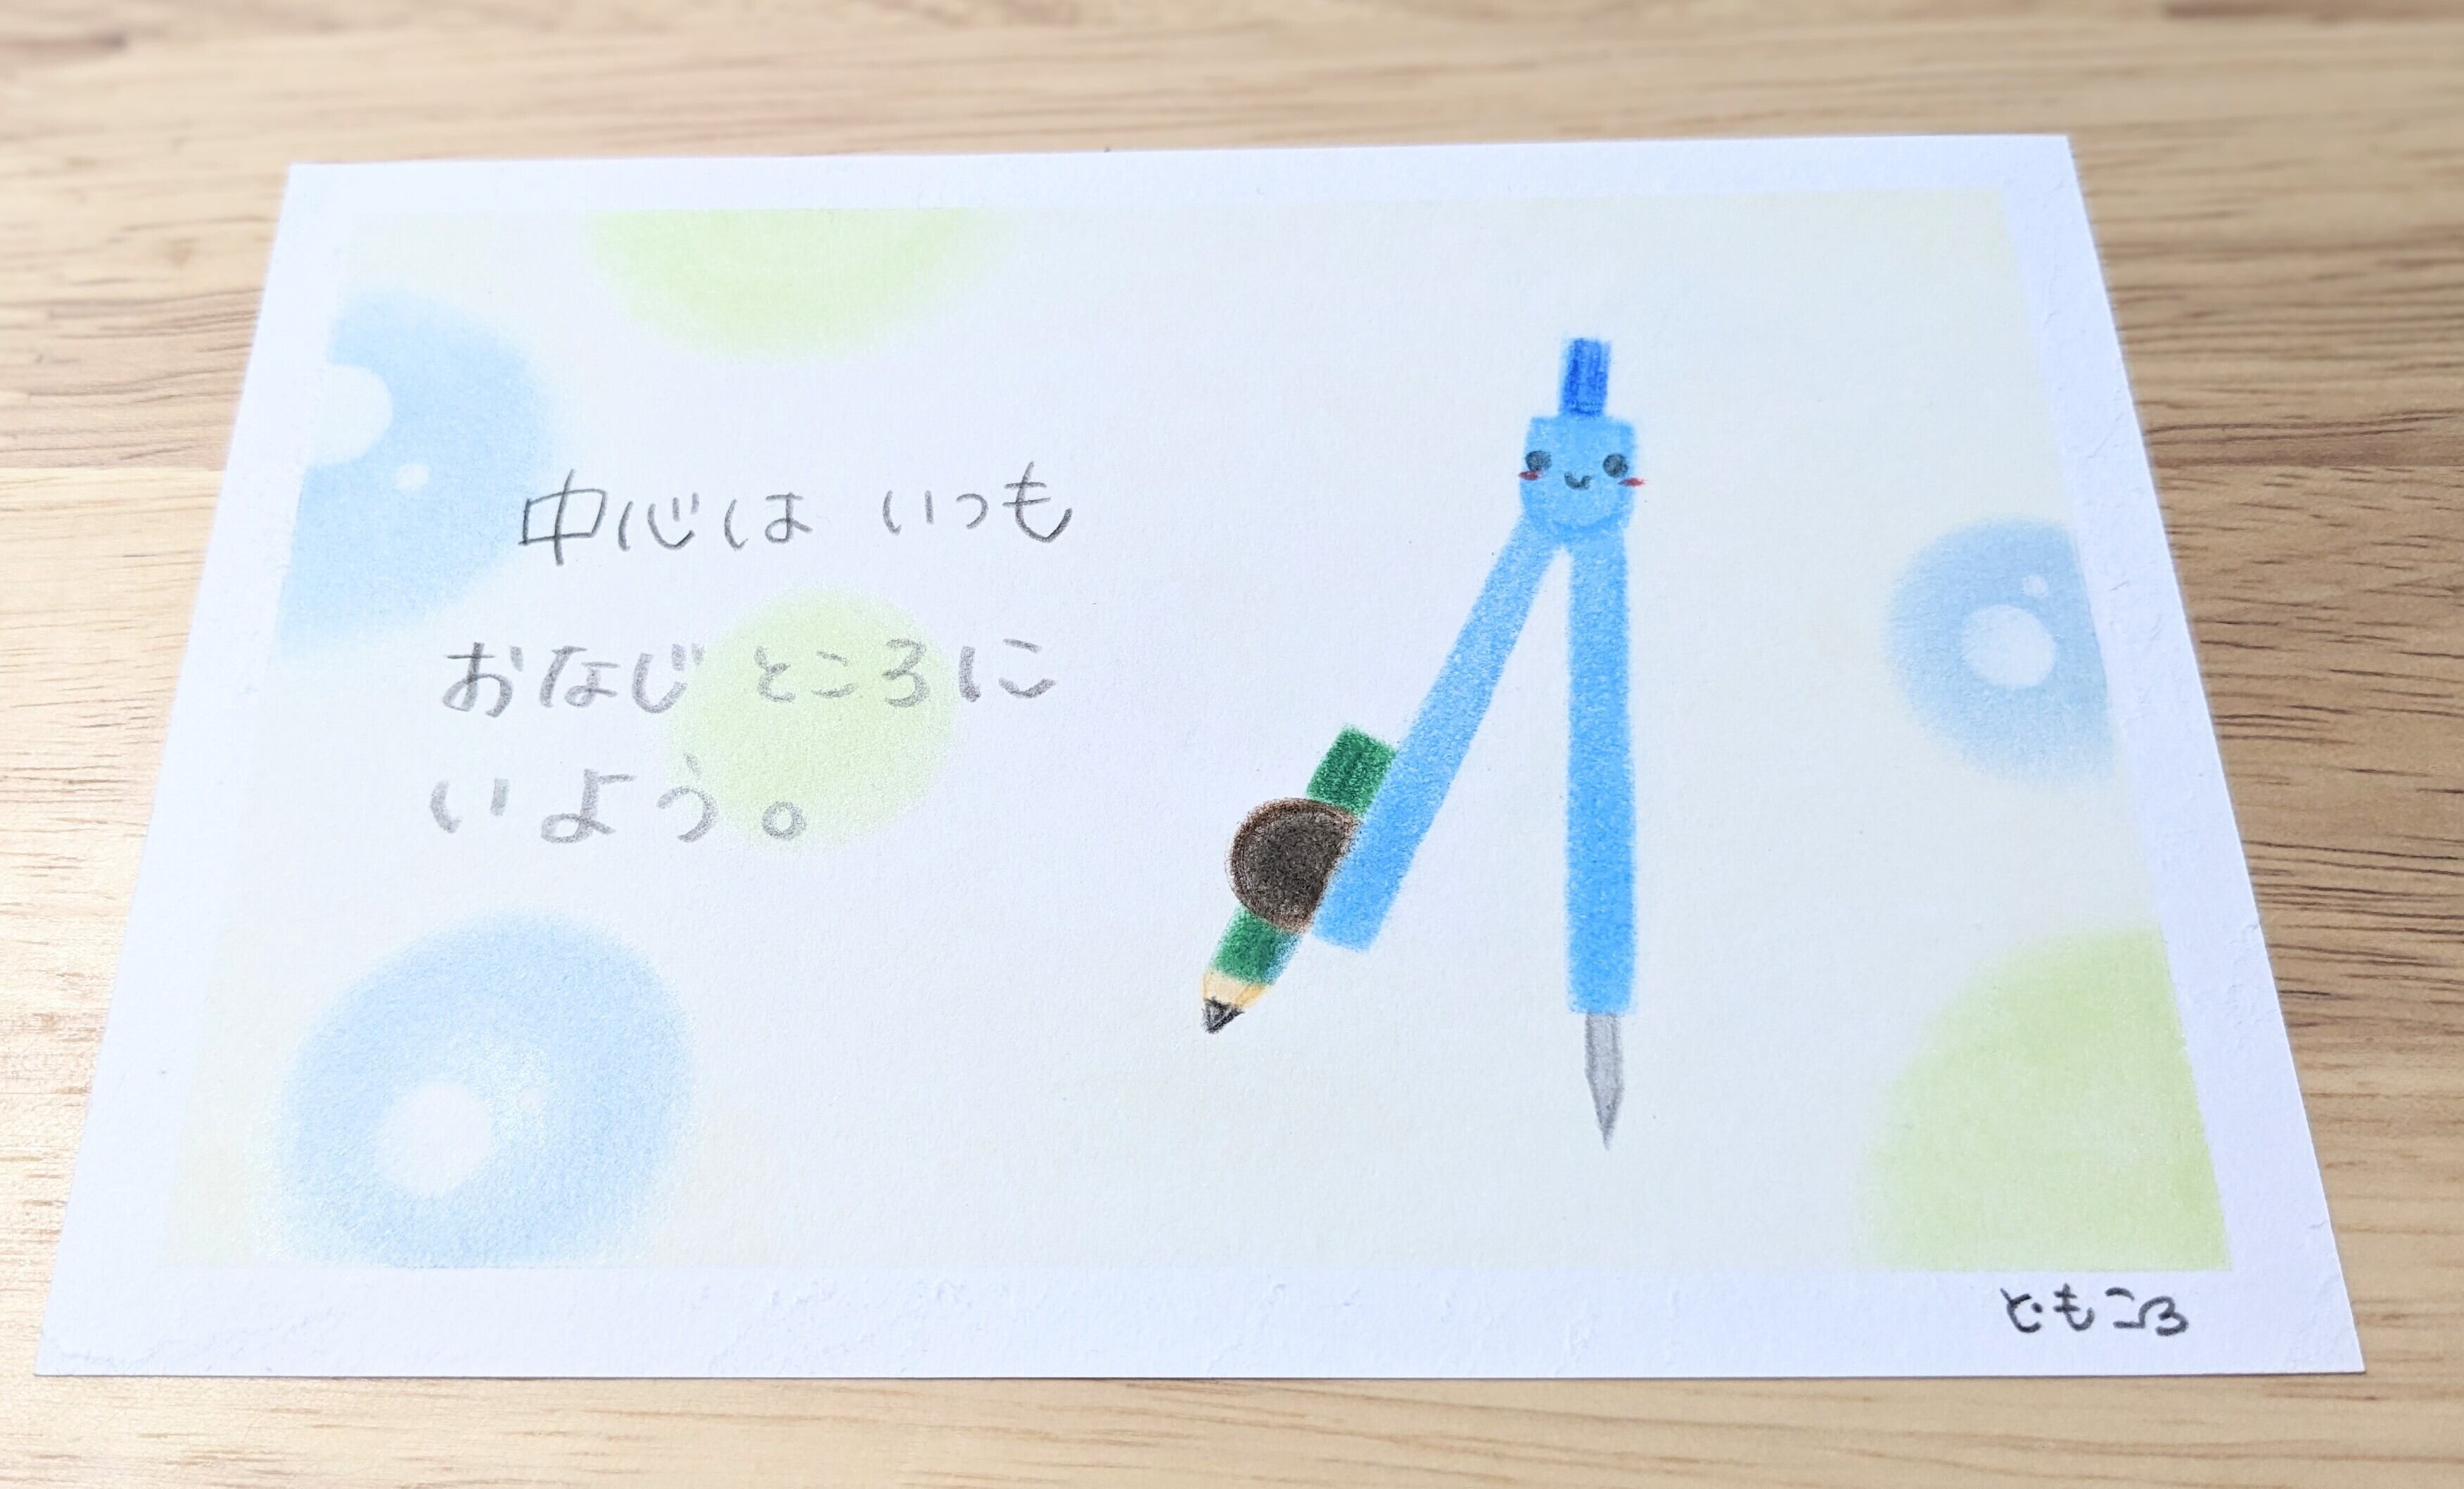 中心は いつも
おなじ ところに
いよう。
ともころ